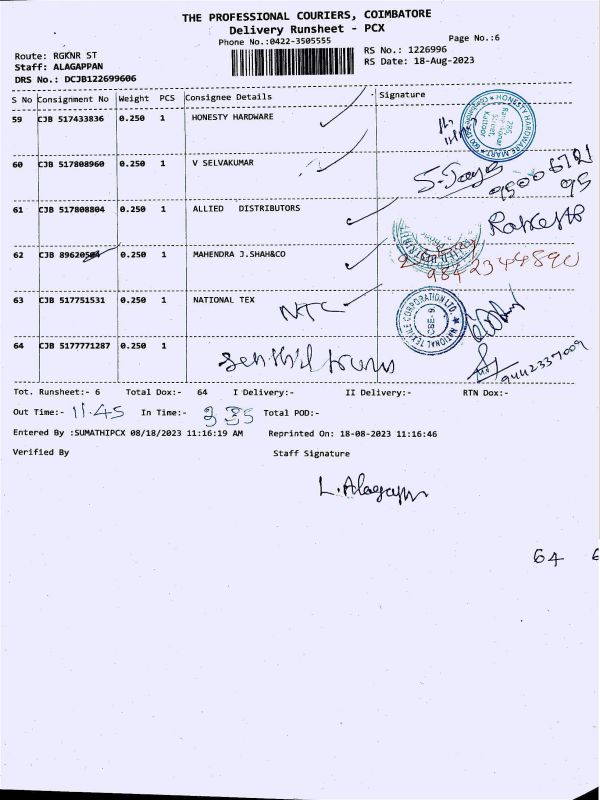 THE PROFESSIONAL COURIERS, COIMBATORE
Delivery Runsheet - PCX
Phone No.:0422-3505555
Page No.:6
Route: RGKNR ST
RS No.: 1226996
Staff: ALAGAPPAN
RS Date: 18-Aug-2023
DRS No.: DCJB122699606
S No Consignment No Weight PCS Consignee Details Signature
59 CJB 517433836 0.250 1 HONESTY HARDWARE
60 CJB 517808960 0.250 1 V SELVAKUMAR
61 CJB 517808804 0.250 1 ALLIED DISTRIBUTORS
62 CJB 89620504 0.250 1 MAHENDRA J.SHAH&CO
9842344890
63 CJB 517751531 0.250 1 NATIONAL TEX NTC
NATIONAL TEXTILE CORPORATION LTD.
64 CJB 5177771287 0.250 1 Senthil
9442337009
Tot. Runsheet:- 6 Total Dox:- 64 I Delivery:- II Delivery:- RTN Dox:-
Out Time:- 11.45 In Time:- Total POD:-
Entered By :SUMATHIPCX 08/18/2023 11:16:19 AM Reprinted On: 18-08-2023 11:16:46
Verified By Staff Signature
64